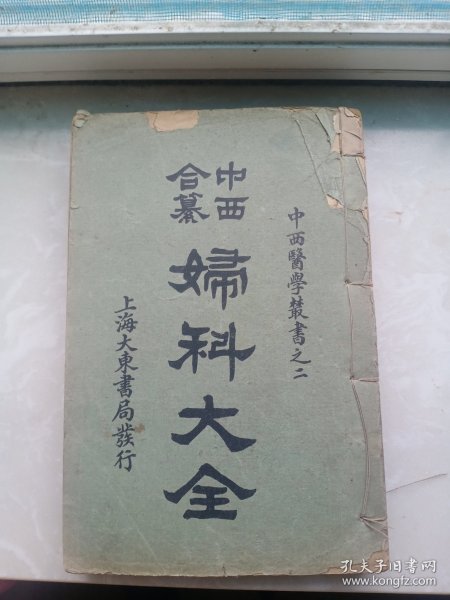 中西醫學叢書之二
中西
合纂
婦科大全
上海大東書局發行
孔夫子旧书网
www.kongfz.com